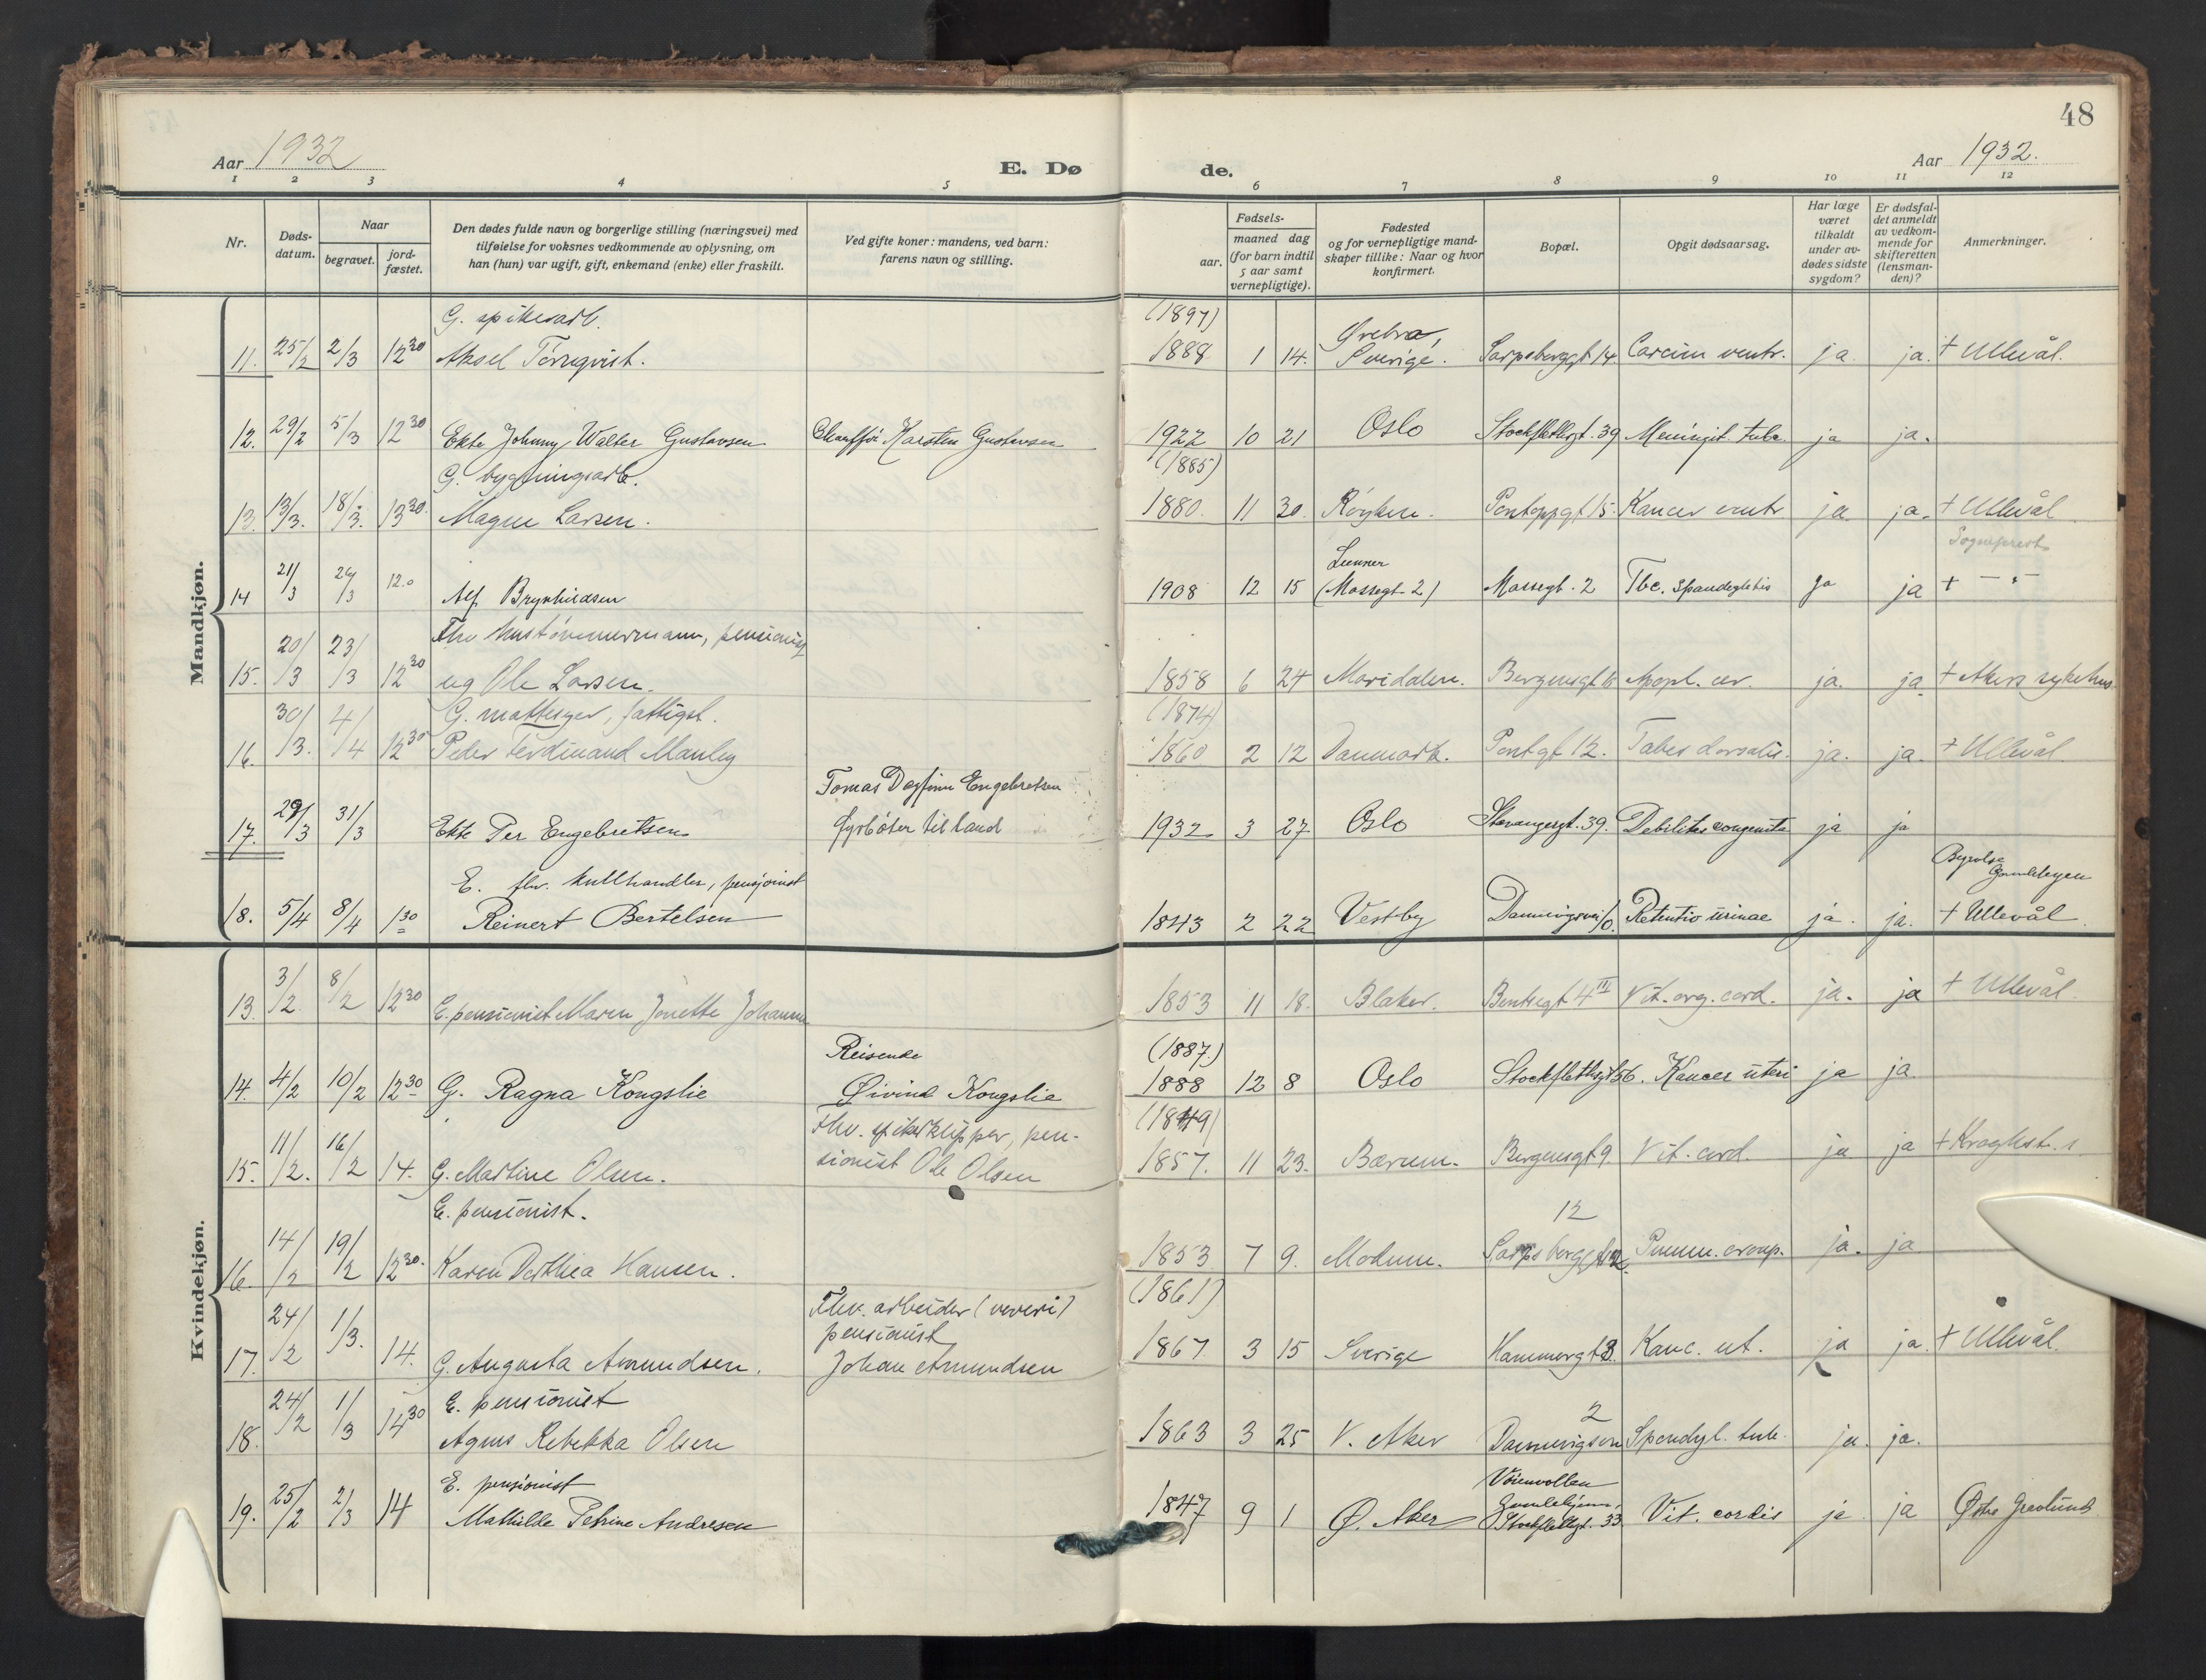 48
Aar 1932
E. Dø
de.
Aar 1932.
1 2 3 4 5 6 7 8 9 10 11 12
Nr.
Døds-
datum.
Naar
begravet.
jord-
fæstet.
Den dødes fulde navn og borgerlige stilling (næringsvei) med
tilføielse for voksnes vedkommende av oplysning, om
han (hun) var ugift, gift, enkemand (enke) eller fraskilt.
Ved gifte koner: mandens, ved barn:
farens navn og stilling.
Fødsels-
aar.
maaned dag
(for barn indtil
5 aar samt
vernepligtige).
Fødested
og for vernepligtige mand-
skaper tillike: Naar og hvor
konfirmert.
Bopæl.
Opgit dødsaarsag.
Har læge
været
tilkaldt
under av-
dødes sidste
sygdom?
Er dødsfal-
det anmeldt
av vedkom-
mende for
skifteretten
(lensman-
den)?
Anmerkninger.
Mandkjøn.
G. spikerarb. (1897) Ørebro,
11. 25/2 2/3 12 30 Aksel Törnqvist. 1888 1 14. Sverige. Sarpsborggt 14. Carcin ventr. ja. ja. + Ullevål.
12. 29/2 5/3 12 30 Ekte Johnny Walter Gustavsen Chauffør Karsten Gustavsen 1922 10 21 Oslo Stockflethsgt. 39 Meningit. tub. ja ja.
G. bygningsarb. (1885)
13. 13/3. 18/3. 13 30. Magne Larsen. 1880. 11 30. Røyken. Pontoppgt 15. Kancer ventr ja ja. + Ullevål
Sogneprest
Lunner
14 21/3 26/3 12.0 Alf Brynhildsen 1908 12 15 (Mossegt. 2) Mossegt. 2 Tbc. ja ja + - " -
Fhv hustømmermann, pensionist
15. 20/3 23/3 12 30 ug Ole Larsen. 1858 6 24 Maridalen. Bergensgt Apopl. cer. ja. ja + Akers sykehus
G. fattigst. (1874)
16. 30/3. 4/4 12 30 Peder Ferdinand Manley 1860 2 12 Danmark. Pontgt 12. Tabes dorsalis. ja. ja. + Ullevål.
Tomas Dagfinn Engebretsen
17. 29/3 31/3 Ekte Per Engebretsen fyrbøter til lands 1932 3 27 Oslo Stavangergt. 39. Debilitas congenita ja ja
E. fhv. kullhandler, pensjonist
18. 5/4 8/4 1 30 Reinert Bertelsen 1843 2 22 Vestby Dannevigsvei 10. Retentio urinae ja. ja. + Ullevål
Kvindekjøn.
13. 3/2. 8/2 12 30 E. pensionist Maren Jonette Johannes 1853 11 18. Blaker. Bentsegt 4 III Vit. org. cord. ja. ja + Ullevål
Reisende (1887.)
14. 4/2 10/2 12 30 G. Ragna Kongslie Øivind Kongslie 1888 12 8 Oslo Stockflethsgt 56. Kancer uteri ja ja.
Fhv. spikerklipper, pen-
15. 11/2. 16/2 14. G. Martine Olsen. sionist Ole Olsen 1857. 11 23. Bærum. Bergensgt 9 Vit. cord. ja ja
E. pensionist. 12
16. 14/2 19/2 12 30. Karen Dorthea Hansen. 1853 7 9. Modum. Sarpsborggt Pneum. croup. ja. ja
Fhv. arbeider (veveri) (1861)
pensionist
17. 24/2 1/3. 14. G. Augusta Amundsen. Johan Amundsen 1867. 3 15 Sverige Hammergt 3. Kanc. ut. ja ja. + Ullevål.
E. pensionist 2
18. 24/2 1/3 14 30 Agnes Rebekka Olsen 1863 3 25 V. Aker Dannevigsvn Spondyl. tub. ja. ja.
E. pensjonist Voienvollen
Gamlehjem,
19. 25/2 2/3 14 Mathilde Petrine Andresen 1847 9 1 Ø. Aker Stockflethsgt. 33 Vit. cordis ja ja Østre Gravlund